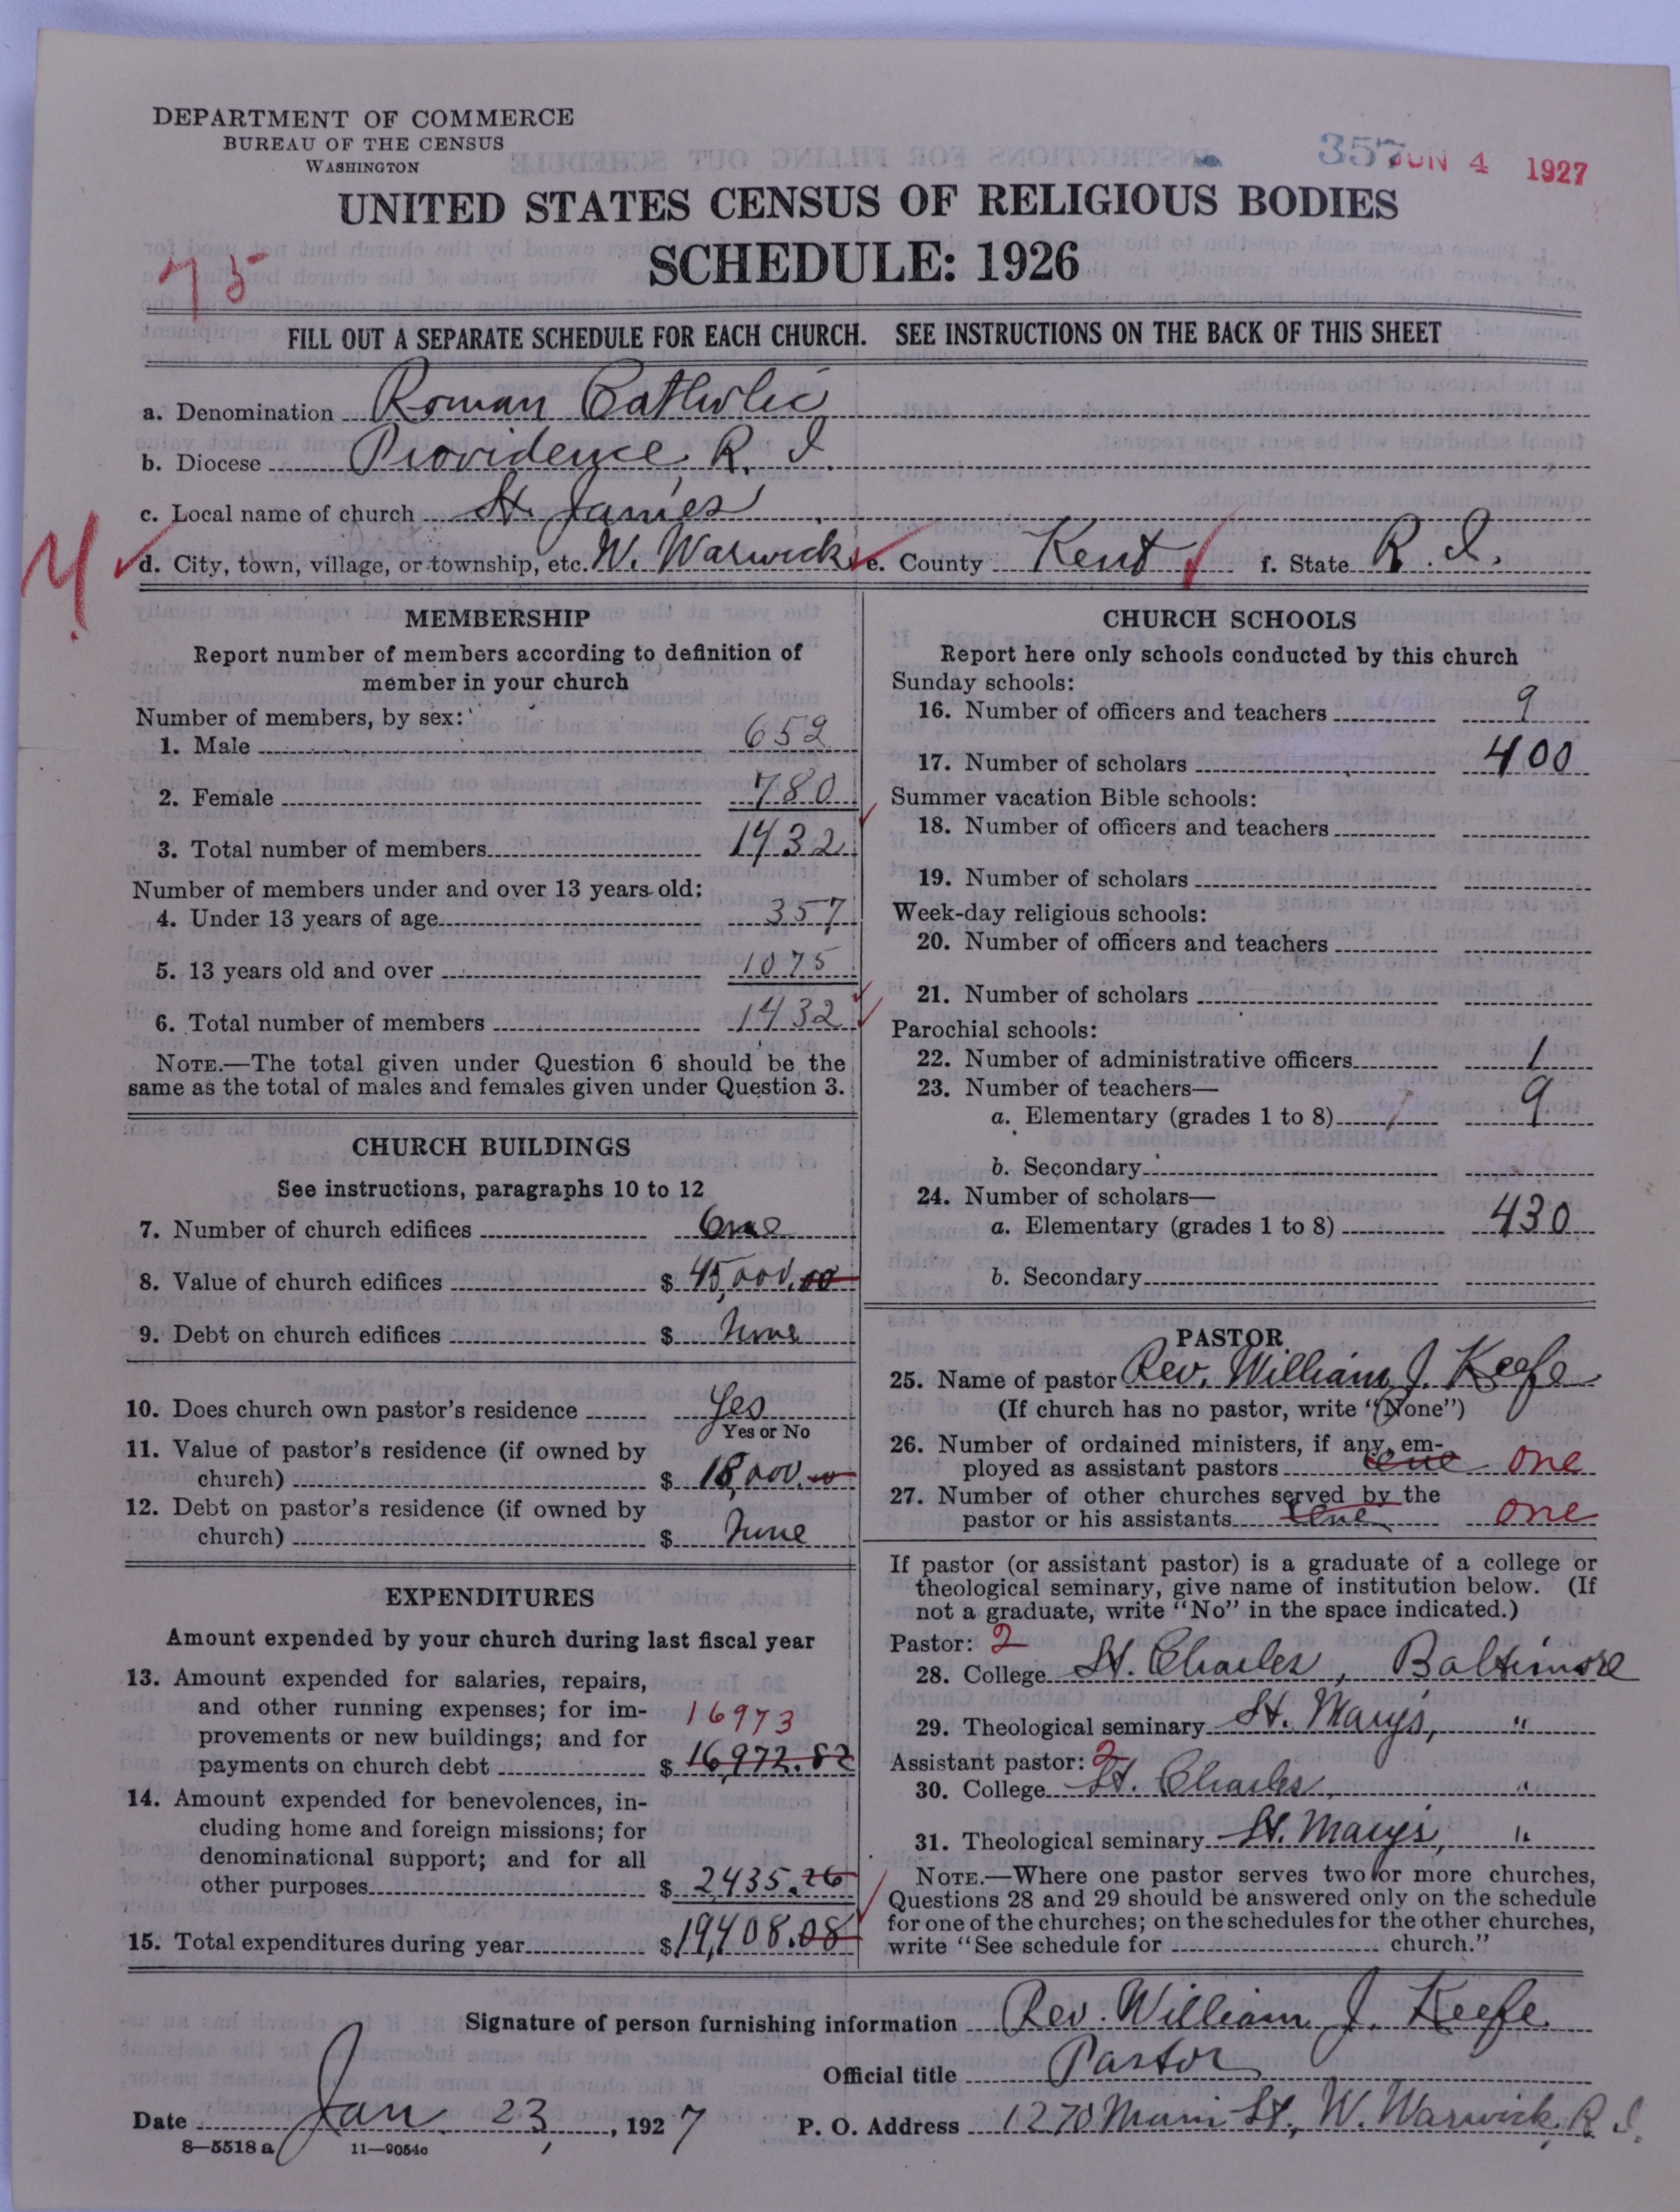 DEPARTMENT OF COMMERCE
BUREAU OF THE CENSUS
WASHINGTON
357 JUN 4 1927
UNITED STATES CENSUS OF RELIGIOUS BODIES
SCHEDULE: 1926
75
FILL OUT A SEPARATE SCHEDULE FOR EACH CHURCH. SEE INSTRUCTIONS ON THE BACK OF THIS SHEET
a. Denomination Roman Catholic
b. Diocese Providence, R. I.
c. Local name of church St. James
d. City, town, village, or township, etc. W. Warwick e. County Kent f. State R. I.
MEMBERSHIP
Report number of members according to definition of
member in your church
Number of members, by sex:
1. Male 652
2. Female 780
3. Total number of members 1432
Number of members under and over 13 years old:
4. Under 13 years of age 357
5. 13 years old and over 1075
6. Total number of members 1432
NOTE.—The total given under Question 6 should be the
same as the total of males and females given under Question 3.
CHURCH BUILDINGS
See instructions, paragraphs 10 to 12
7. Number of church edifices One
8. Value of church edifices $ 45,000.00
9. Debt on church edifices $ None
10. Does church own pastor's residence Yes
Yes or No
11. Value of pastor's residence (if owned by
church) $ 18,000.00
12. Debt on pastor's residence (if owned by
church) $ None
EXPENDITURES
Amount expended by your church during last fiscal year
13. Amount expended for salaries, repairs,
and other running expenses; for im-
provements or new buildings; and for 16973
payments on church debt $ 16,972.82
14. Amount expended for benevolences, in-
cluding home and foreign missions; for
denominational support; and for all
other purposes $ 2435.26
15. Total expenditures during year $ 19,408.08
CHURCH SCHOOLS
Report here only schools conducted by this church
Sunday schools:
16. Number of officers and teachers 9
17. Number of scholars 400
Summer vacation Bible schools:
18. Number of officers and teachers
19. Number of scholars
Week-day religious schools:
20. Number of officers and teachers
21. Number of scholars
Parochial schools:
22. Number of administrative officers 1
23. Number of teachers—
a. Elementary (grades 1 to 8) 9
b. Secondary
24. Number of scholars—
a. Elementary (grades 1 to 8) 430
b. Secondary
PASTOR
25. Name of pastor Rev. William J. Keefe
(If church has no pastor, write "None")
26. Number of ordained ministers, if any, em-
ployed as assistant pastors one one
27. Number of other churches served by the
pastor or his assistants one one
If pastor (or assistant pastor) is a graduate of a college or
theological seminary, give name of institution below. (If
not a graduate, write "No" in the space indicated.)
Pastor: 2
28. College St. Charles, Baltimore
29. Theological seminary St. Mary's, "
Assistant pastor: 2
30. College St. Charles, "
31. Theological seminary St. Mary's, "
NOTE.—Where one pastor serves two or more churches,
Questions 28 and 29 should be answered only on the schedule
for one of the churches; on the schedules for the other churches,
write "See schedule for church."
Signature of person furnishing information Rev. William J. Keefe
Official title Pastor
Date Jan 23, 1927 P. O. Address 1270 Main St., W. Warwick, R. I.
8—5518 a 11—9054c